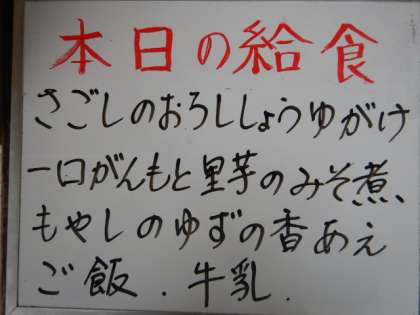 本日の給食
さごしのおろししょうゆがけ
一口がんもと里芋のみそ煮、
もやしのゆずの香あえ
ご飯.牛乳.